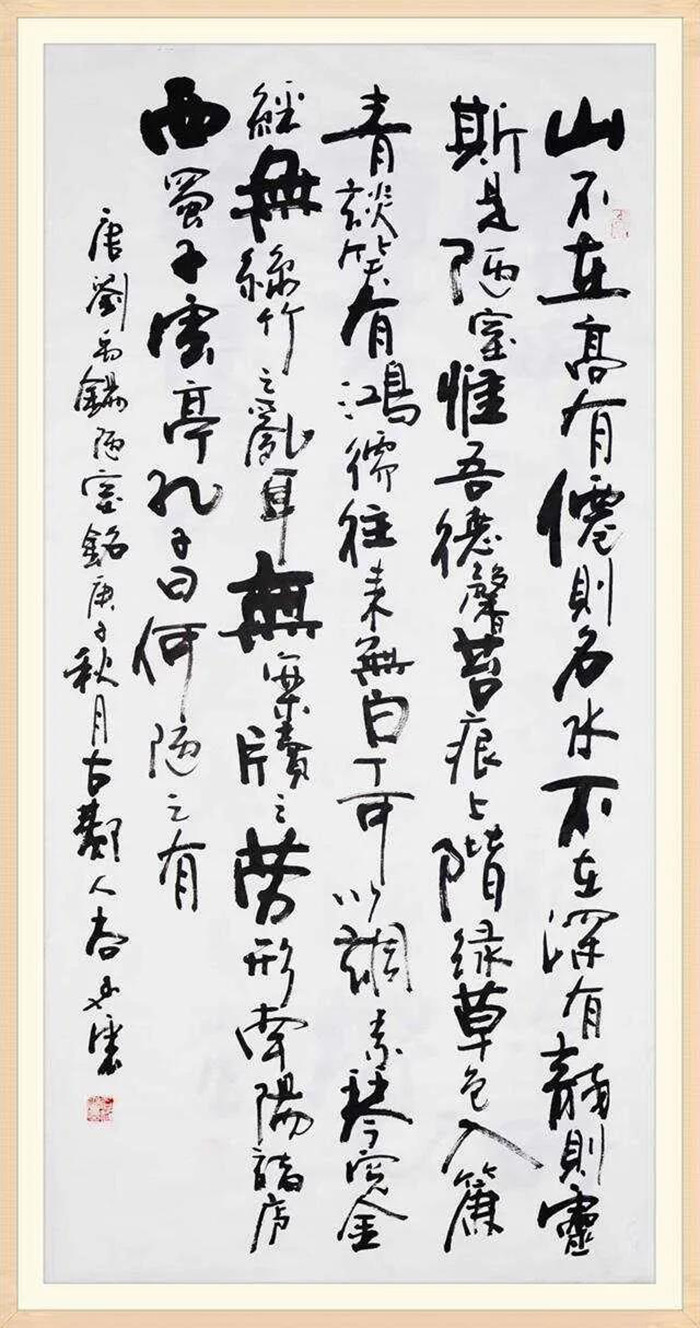 山不在高有僊則名水不在深有龍則靈
斯是陋室惟吾德馨苔痕上階緑草色入簾
青談笑有鴻儒往来無白丁可以調素琴閲金
經無絲竹之亂耳無案牘之勞形南陽諸庐
西蜀子雲亭孔子曰何陋之有
唐劉禹錫陋室銘庚子秋月古酇人尚雲